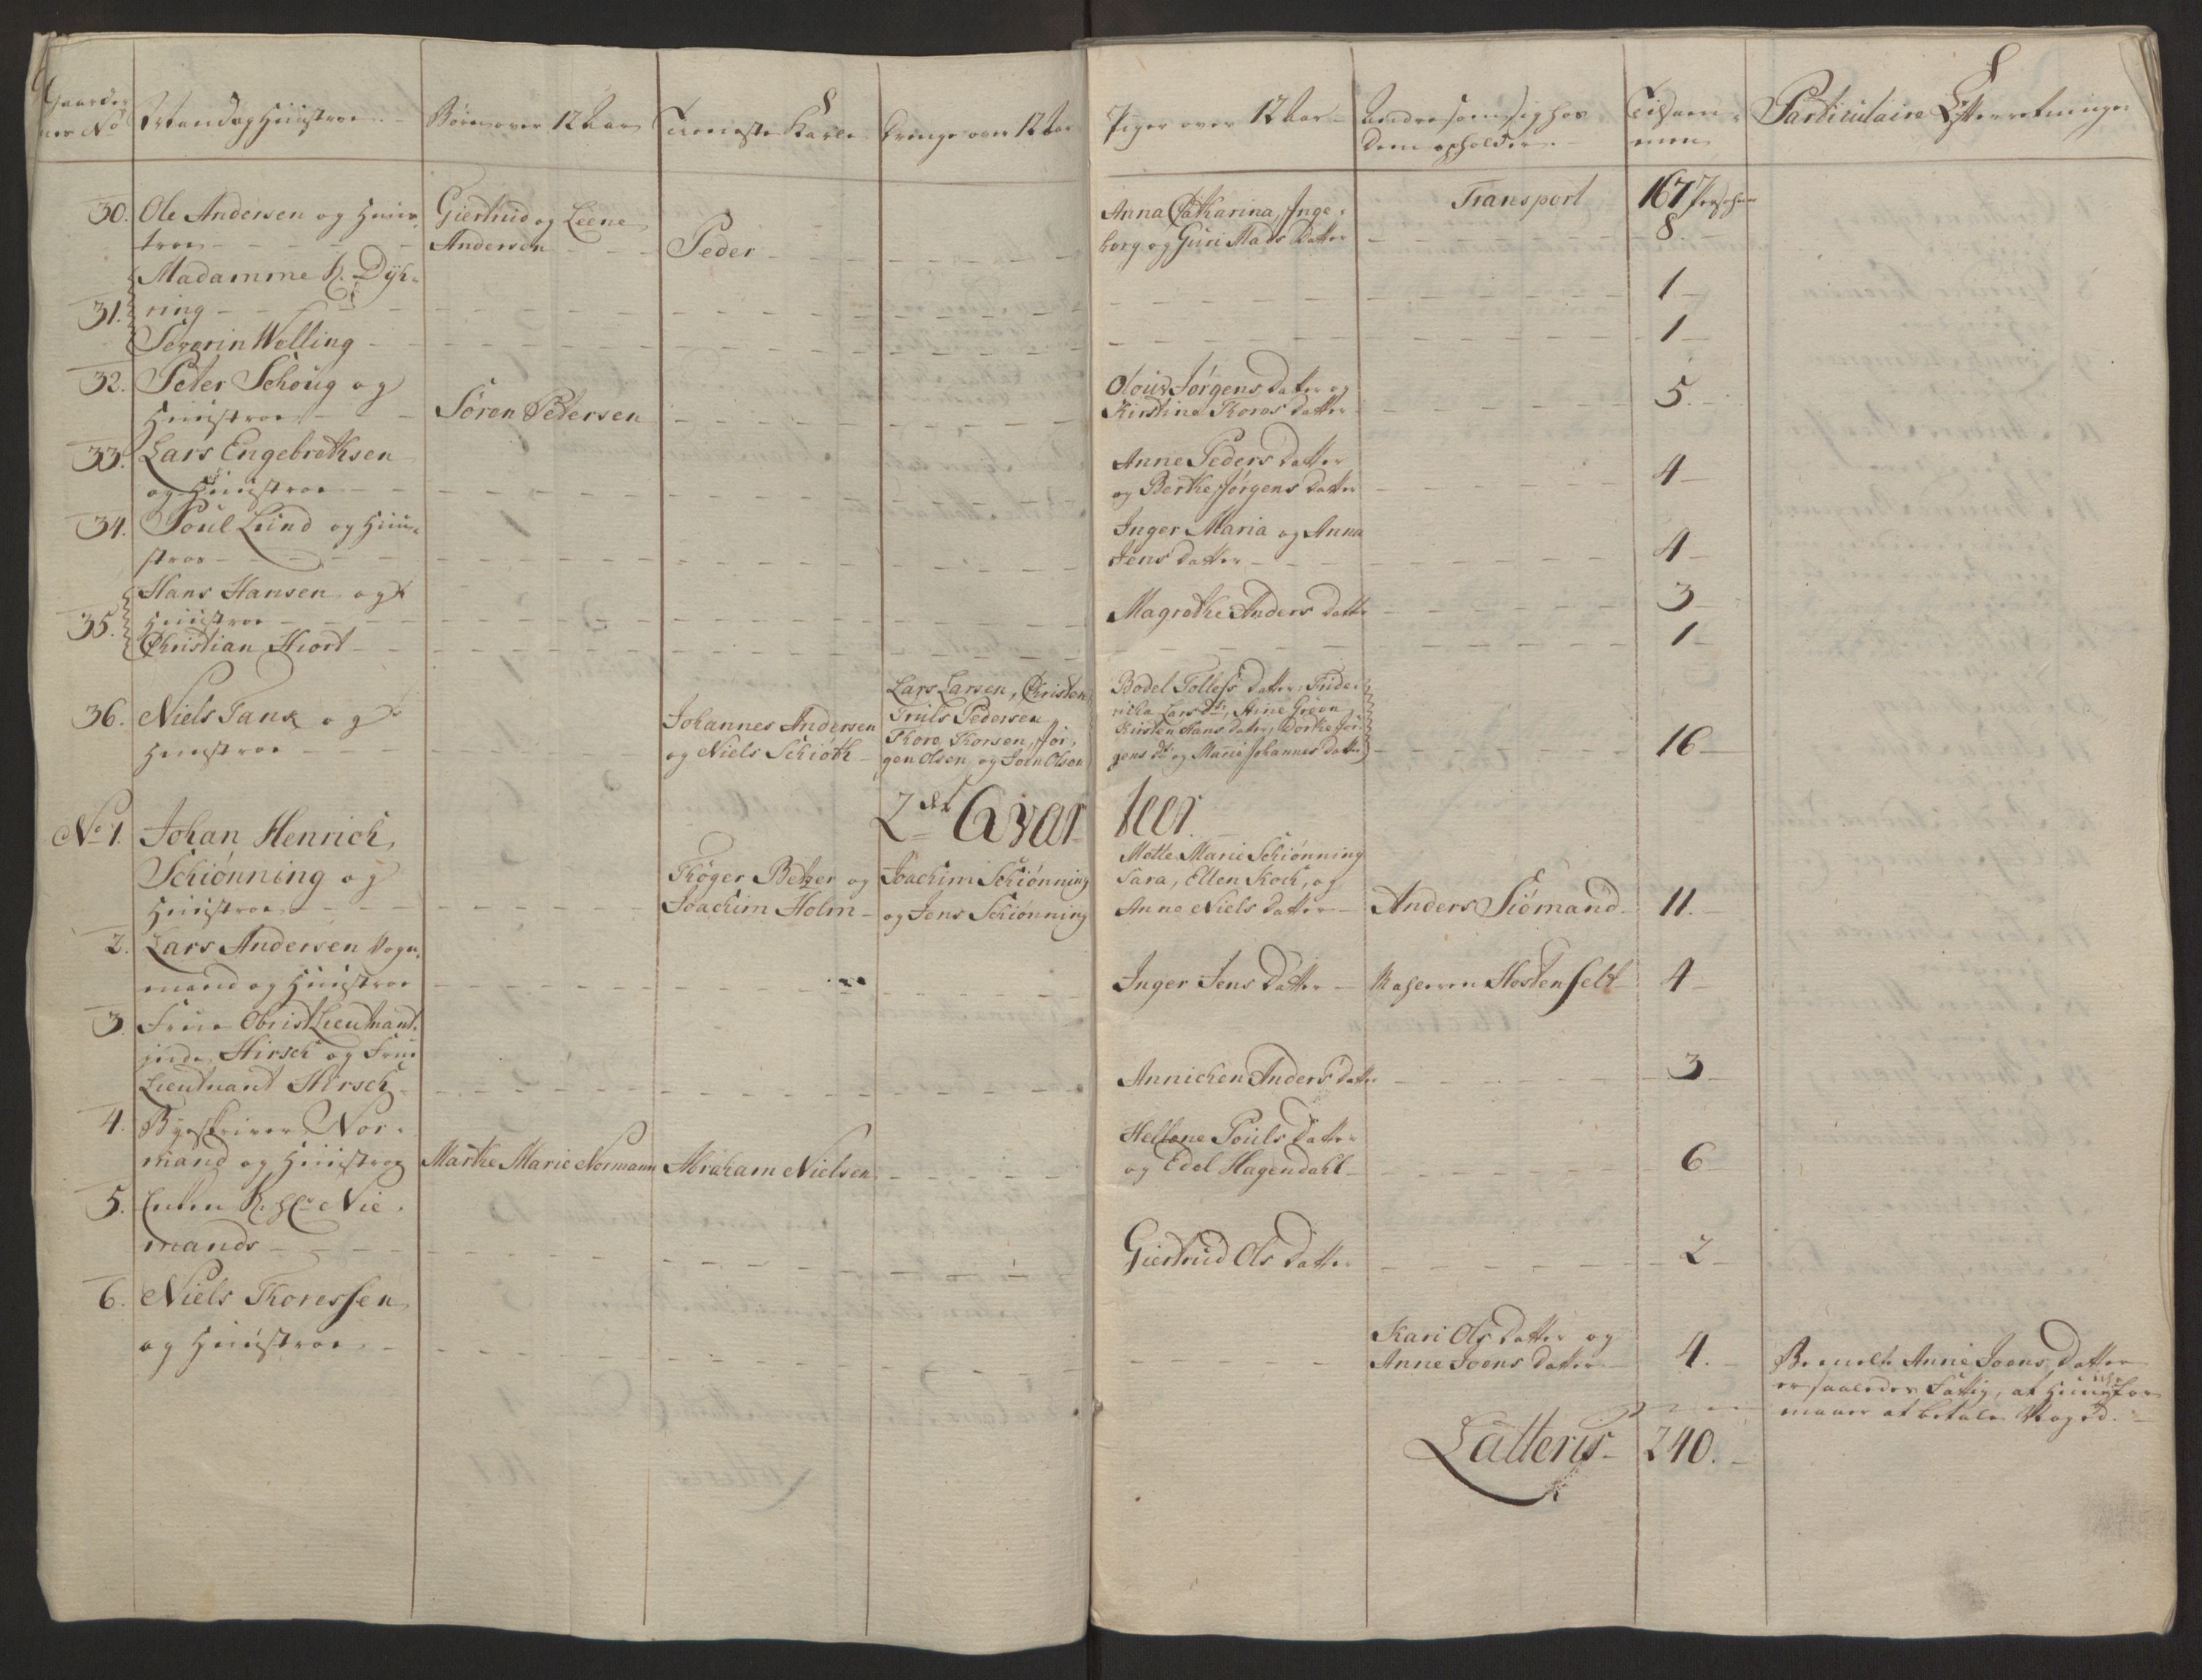 Gaarder
nes No
Mand og Hustroe
Børn over 12 Aar
Tieneste Karle
Drenge over 12 Aar
Piger over 12 Aar
Andre som sig hos
dem opholder.
Tilsam-
men
Particulaire Efterretninger
Transport 167 Persohner
30. Ole Andersen og Hues-
troe
Giertrud og Leene
Andersen
Peder
Anna Catharina, Inge-
borg og Guri Mads datter
8.
31. Madamme K. Dyh-
ring
1
Severin Welling
1
32. Peter Schoug og
Huustroe
Søren Petersen
Olou Jørgens datter og
Kirstine Thores datter
5.
33. Lars Engebrethsen
og Huustroe
Anne Peders datter
og Berthe Jørgens datter
4
34. Poul Lund og Huu-
stroe
Inger Maria og Anna
Jens datter
4
35. Hans Hansen og
Huustroe
Magrethe Anders datter
3
Christian Hiort
1
36. Niels Tank og
Huustroe
Johannes Andersen
og Niels Schiøth
Lars Larsen, Christen
Truls Pedersen,
Thore Thorsen, Jør-
gen Olsen og Joen Olsen
Bodel Tollefs datter, Fride-
richa Lars dtr, Stine Green,
Kirsten Hans datter, Dorthe Jør-
gens dtr og Marie Johannes datter
16
2det Qvarteer
No 1. Johan Henrich
Schiønning og
Huustroe
Thøger Betzer og
Joachim Holm
Joachim Schiønning
og Jens Schiønning
Mette Marie Schiønning
Sara, Ellen Koch, og
Anne Niels datter
Anders Siømand
11.
2. Lars Andersen Vogn-
mand og Huustroe
Inger Jens datter
Hostenfelt
4
3. Frue Obrist Lieutnant-
inde Hirsch og Frue
Lieutnant Hirsch
Annichen Anders datter
3
4. Byeskriver Nor-
mand og Huustroe
Marthe Marie Normann
Abraham Nielsen
Hellene Pouls datter
og Edel Hagendahl
6
5. Enken K. Sl. Nie-
mands
Giertrud Ols datter
2
6. Niels Thoressen
og Huustroe
Kari Ols datter og
Anne Joens datter
4.
Bemelte Anne Joens datter
er saaledes fattig, at hun icke for-
maaer at betale Noged.
Latteris 240.